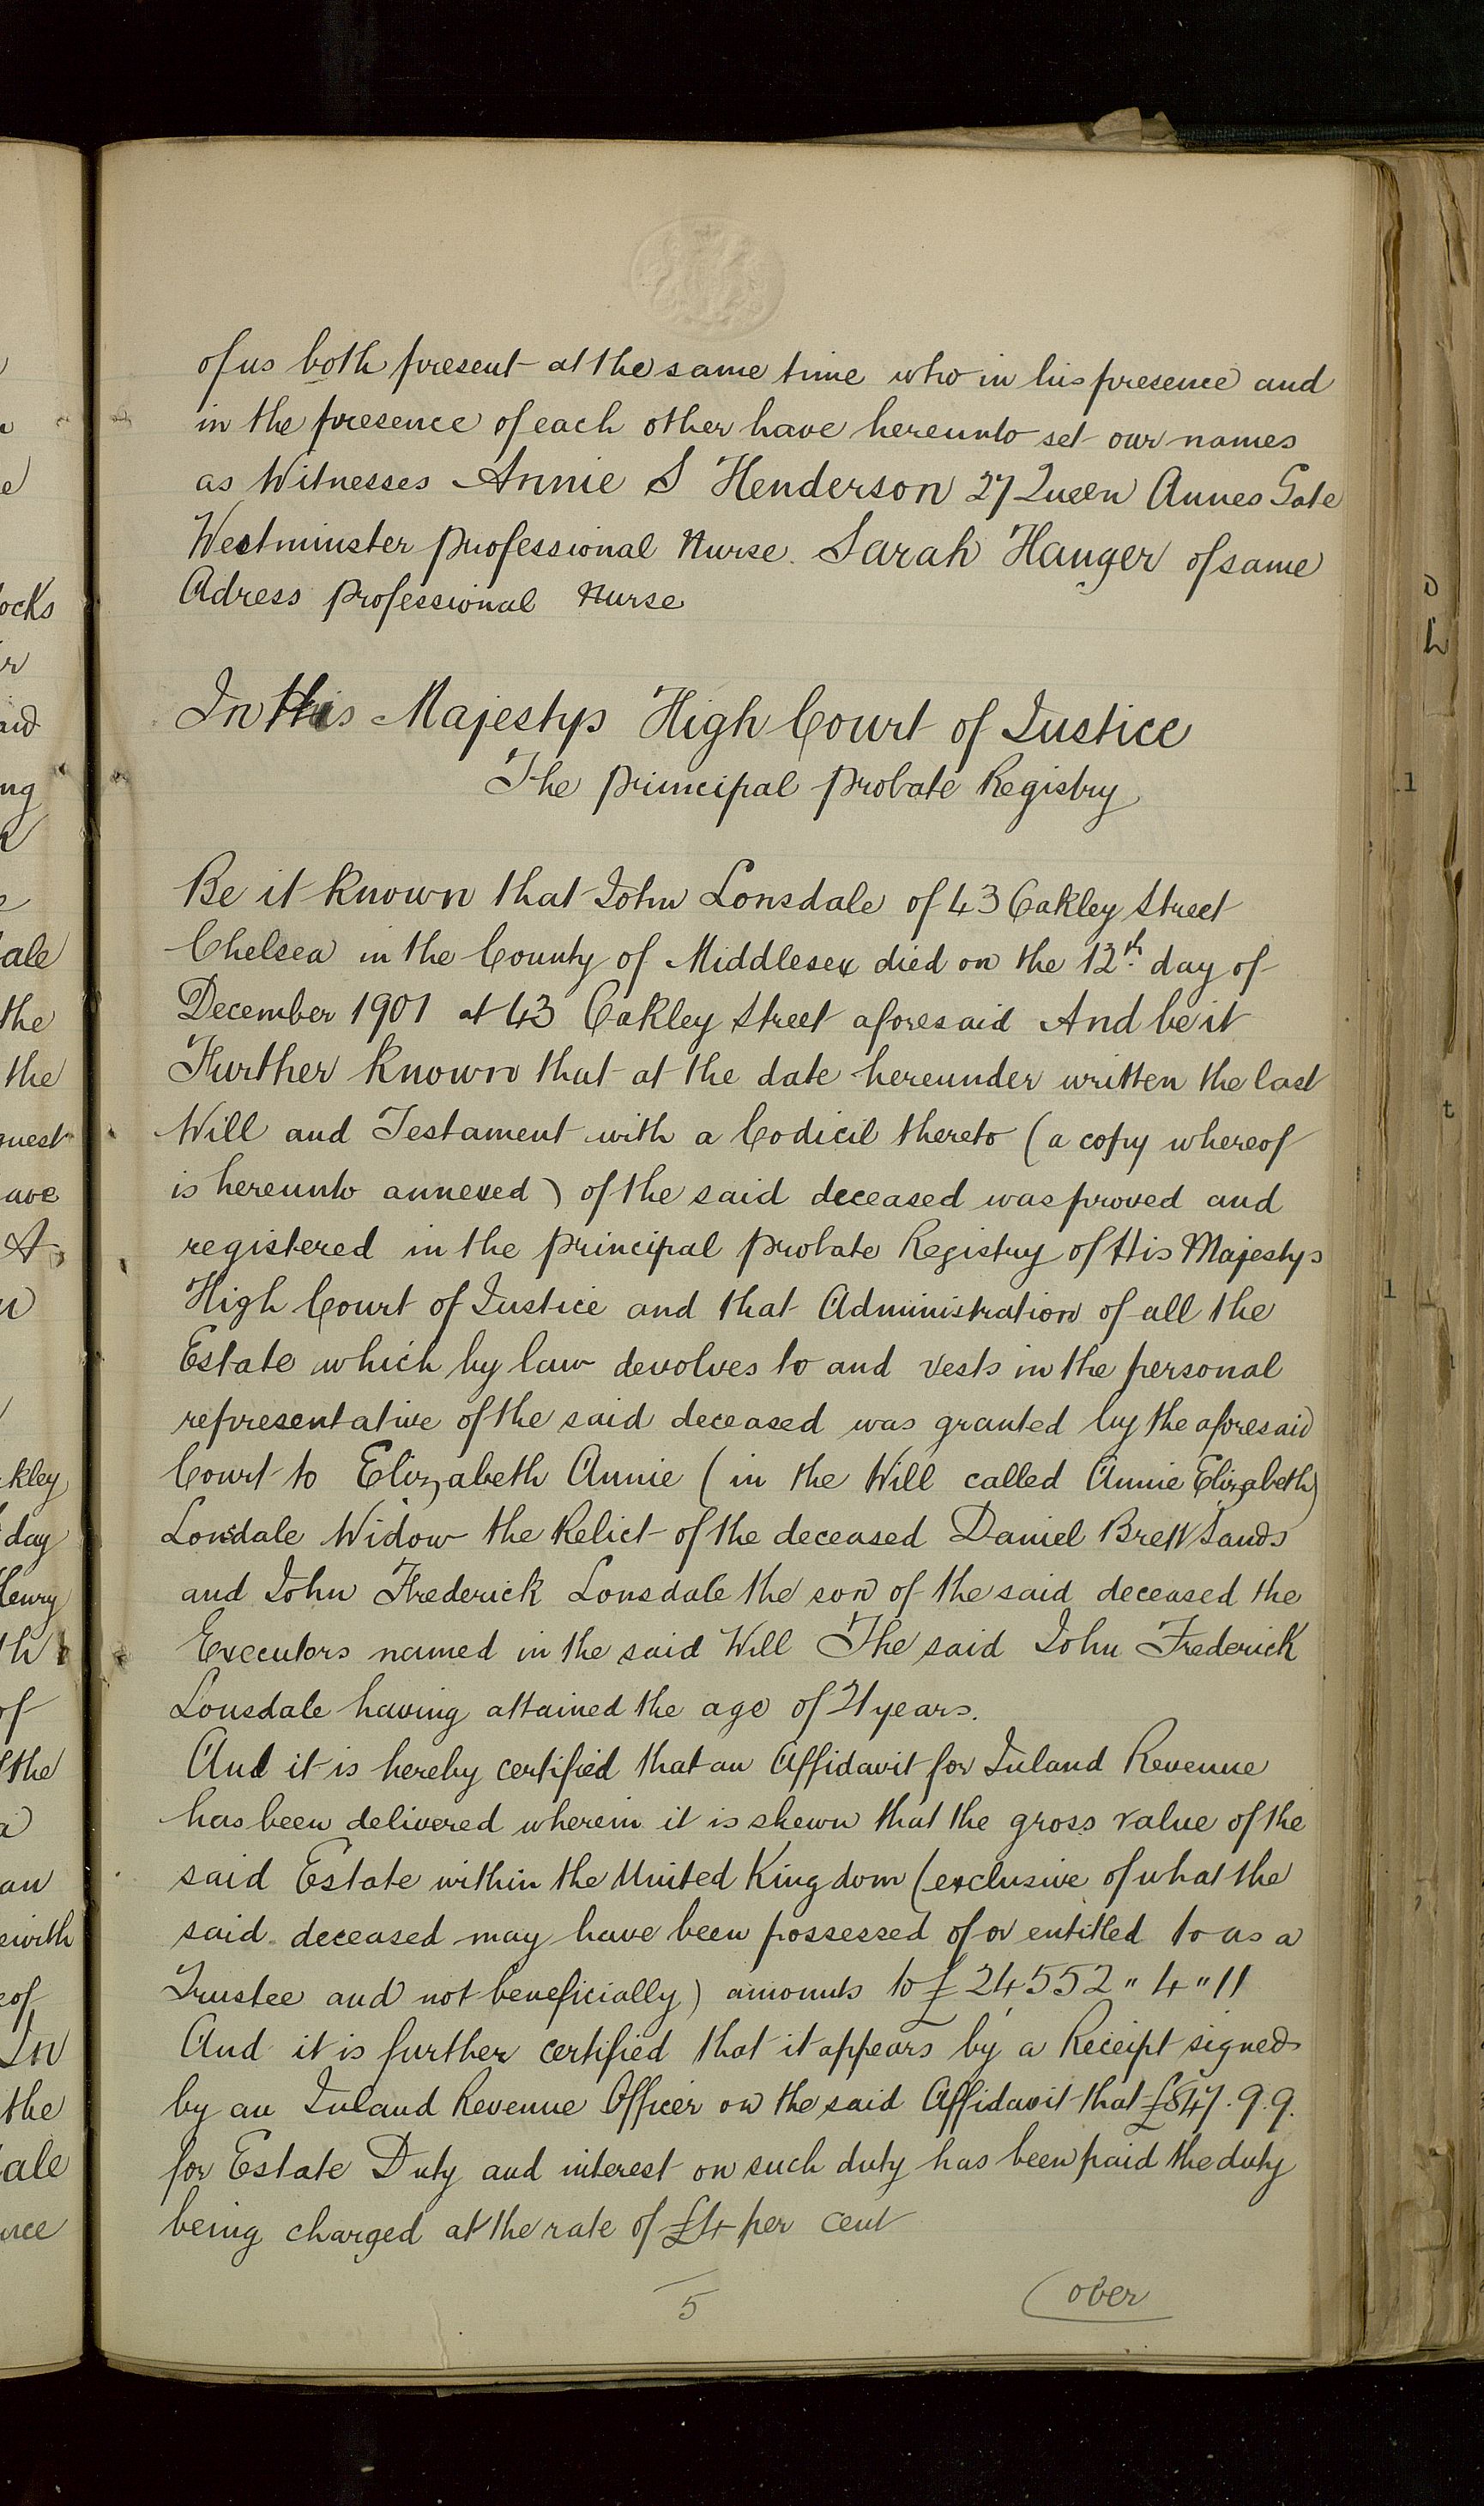 of us both present at the same time who in his presence and
in the presence of each other have hereunto set our names
as Witnesses Annie S Henderson 27 Queen Annes Gate
Westminster professional Nurse. Sarah Hanger of same
Adress professional Nurse
In His Majestys High Court of Justice
The principal probate Registry
Be it known that John Lonsdale of 43 Oakley Street
Chelsea in the County of Middlesex died on the 12th day of
December 1901 at 43 Oakley Street aforesaid And be it
Further known that at the date hereunder written the last
Will and Testament with a Codicil thereto (a copy whereof
is hereunto annexed) of the said deceased was proved and
registered in the principal probate Registry of His Majestys
High Court of Justice and that Administration of all the
Estate which by law devolves to and vests in the personal
representative of the said deceased was granted by the aforesaid
Court to Elizabeth Annie (in the Will called Annie Elizabeth)
Lonsdale Widow the Relict of the deceased Daniel Brett Sands
and John Frederick Lonsdale the son of the said deceased the
Executors named in the said Will The said John Frederick
Lonsdale having attained the age of 21 years.
And it is hereby certified that an Affidavit for Inland Revenue
has been delivered wherein it is shewn that the gross value of the
said Estate within the United Kingdom (exclusive of what the
said deceased may have been possessed of or entitled to as a
Trustee and not beneficially) amounts to £24,552 " 4 " 11
And it is further certified that it appears by a Receipt signed
by an Inland Revenue Officer on the said Affidavit that £847.9.9.
for Estate Duty and interest on such duty has been paid the duty
being charged at the rate of £4 per cent
5
over